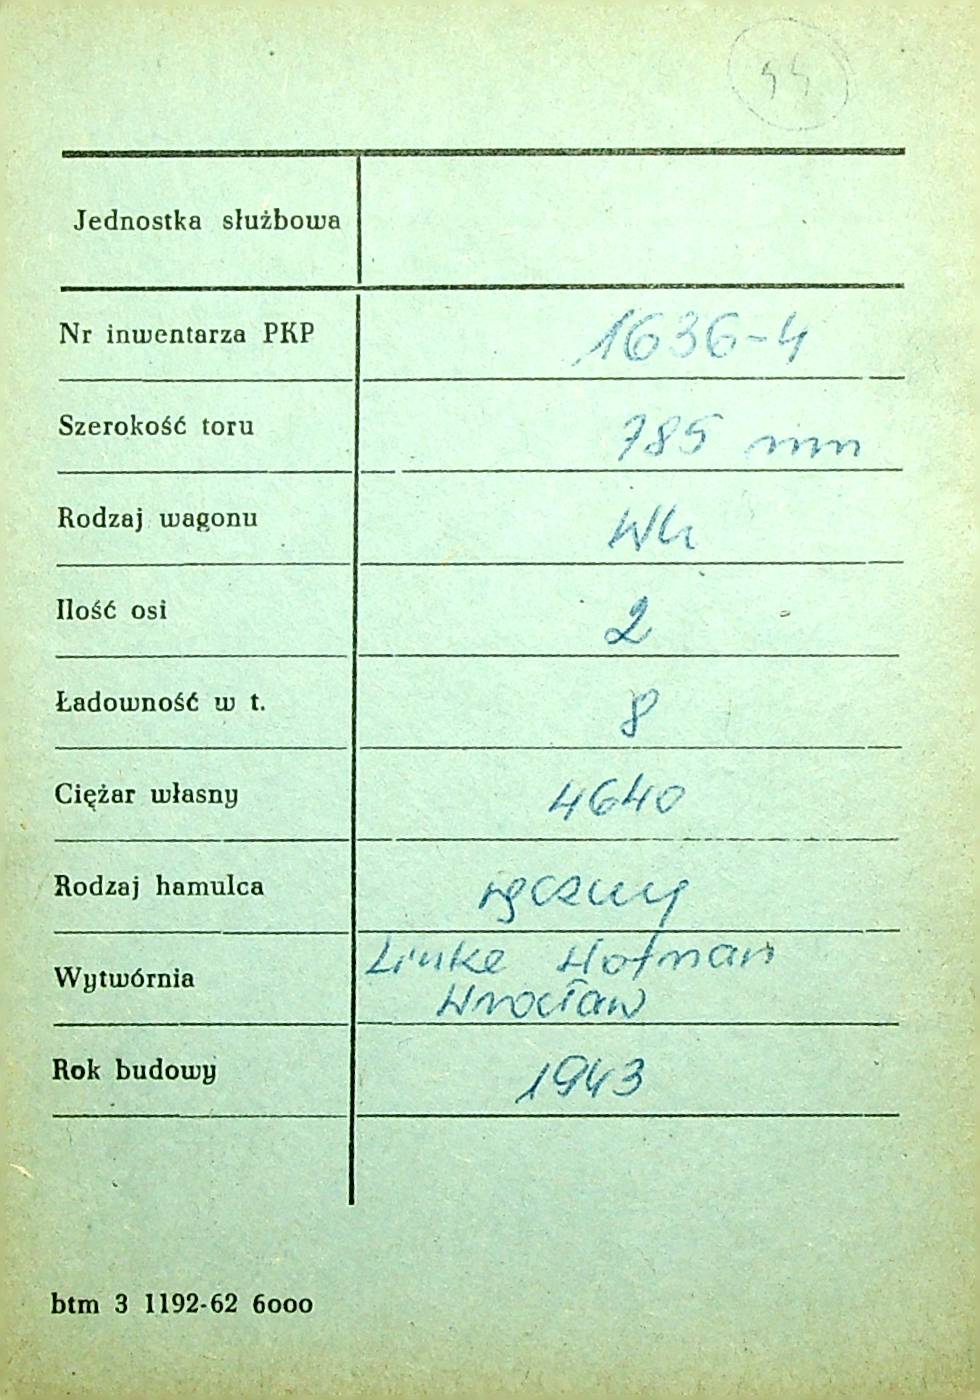 44
Jednostka służbowa
Nr inwentarza PKP 1636-4
Szerokość toru 785 mm
Rodzaj wagonu Wh
Ilość osi 2
Ładowność w t. 8
Ciężar własny 4640
Rodzaj hamulca ręczny
Wytwórnia Linke Hofman
Wrocław
Rok budowy 1943
btm 3 1192-62 6000